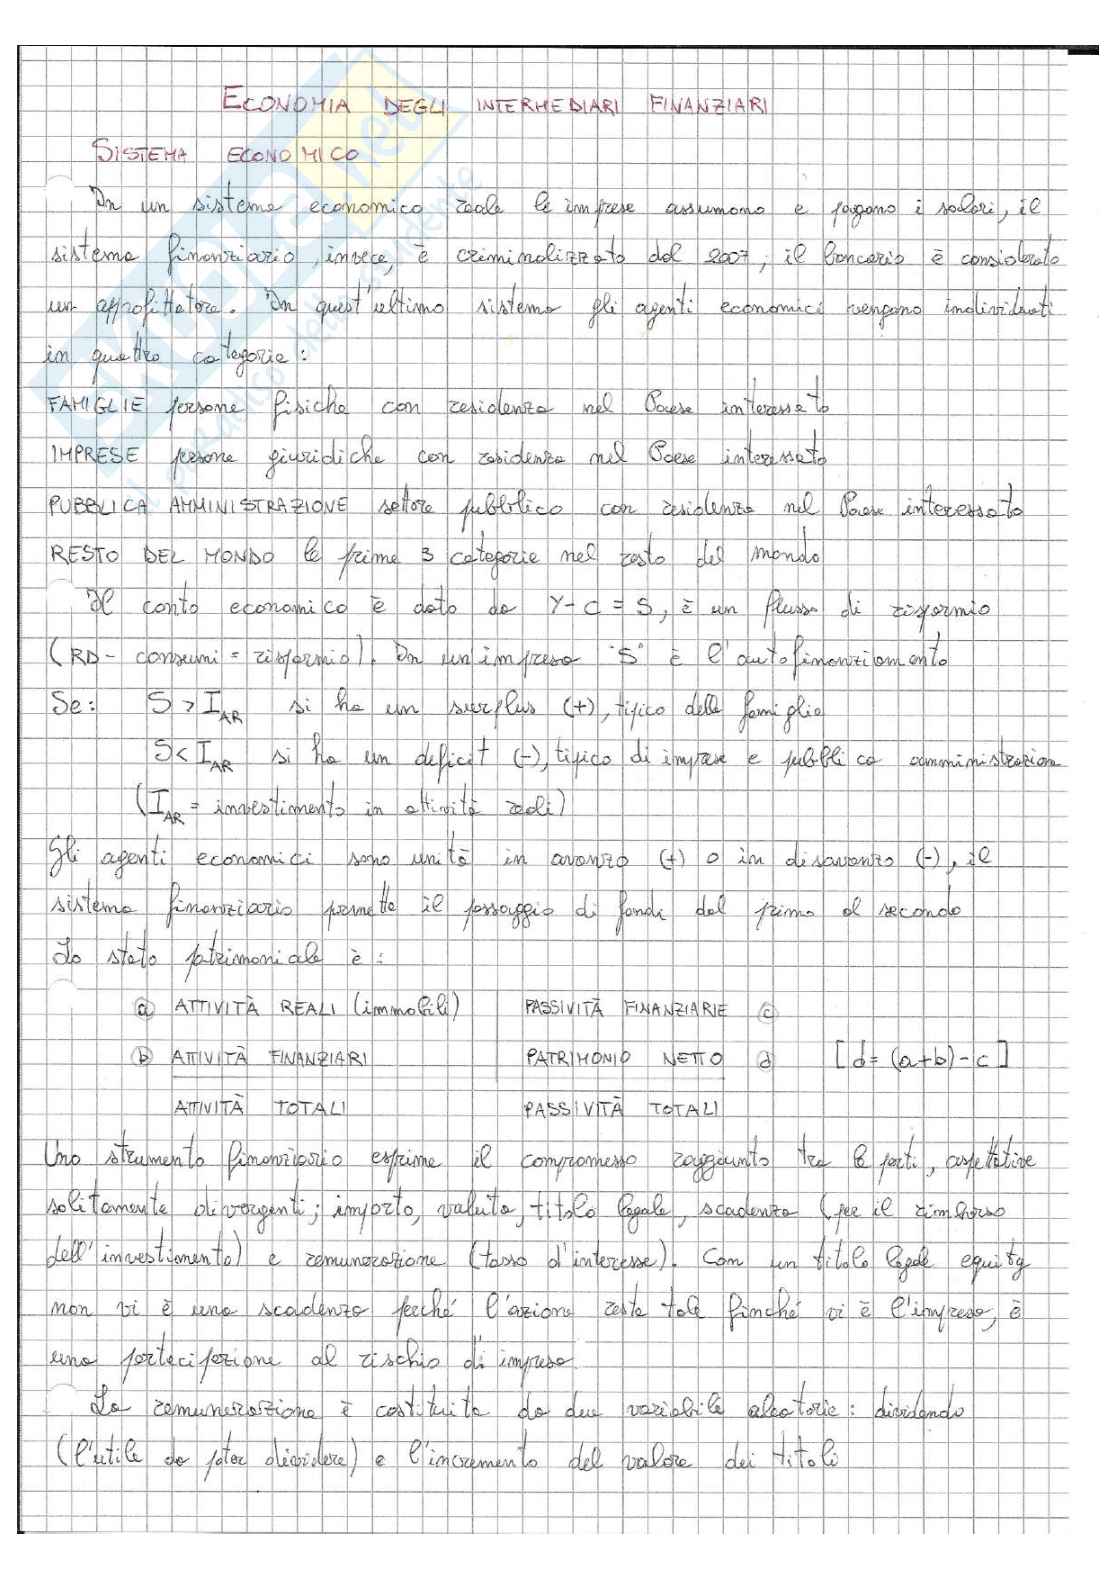 ECONOMIA DEGLI INTERMEDIARI FINANZIARI
SISTEMA ECONOMICO
In un sistema economico reale le imprese assumono e pagano i salari, il
sistema finanziario, invece, è criminalizzato dal 2007, il bancario è considerato
un approfittatore. In quest'ultimo sistema gli agenti economici vengono individuati
in quattro categorie:
FAMIGLIE persone fisiche con residenza nel Paese interessato
IMPRESE persone giuridiche con residenza nel Paese interessato
PUBBLICA AMMINISTRAZIONE settore pubblico con residenza nel Paese interessato
RESTO DEL MONDO le prime 3 categorie nel resto del mondo
Il conto economico è dato da Y-C = S, è un flusso di risparmio
(RD - consumi = risparmio). In un'impresa "S" è l'autofinanziamento
Se: S > I_AR si ha un surplus (+), tipico delle famiglie
S < I_AR si ha un deficit (-), tipico di imprese e pubblica amministrazione
(I_AR = investimento in attività reali)
Gli agenti economici sono unità in avanzo (+) o in disavanzo (-), il
sistema finanziario permette il passaggio di fondi dal primo al secondo
Lo stato patrimoniale è:
ⓐ ATTIVITÀ REALI (immobili) PASSIVITÀ FINANZIARIE ⓒ
ⓑ ATTIVITÀ FINANZIARI PATRIMONIO NETTO ⓓ [d = (a+b) - c]
ATTIVITÀ TOTALI PASSIVITÀ TOTALI
Uno strumento finanziario esprime il compromesso raggiunto tra le parti, aspettative
solitamente divergenti; importo, valuta, titolo legale, scadenza (per il rimborso
dell'investimento) e remunerazione (tasso d'interesse). Con un titolo legale equity
non vi è una scadenza perché l'azione resta tale finché vi è l'impresa, è
una partecipazione al rischio di impresa.
La remunerazione è costituita da due variabile aleatorie: dividendo
(l'utile da poter dividere) e l'incremento del valore dei titoli